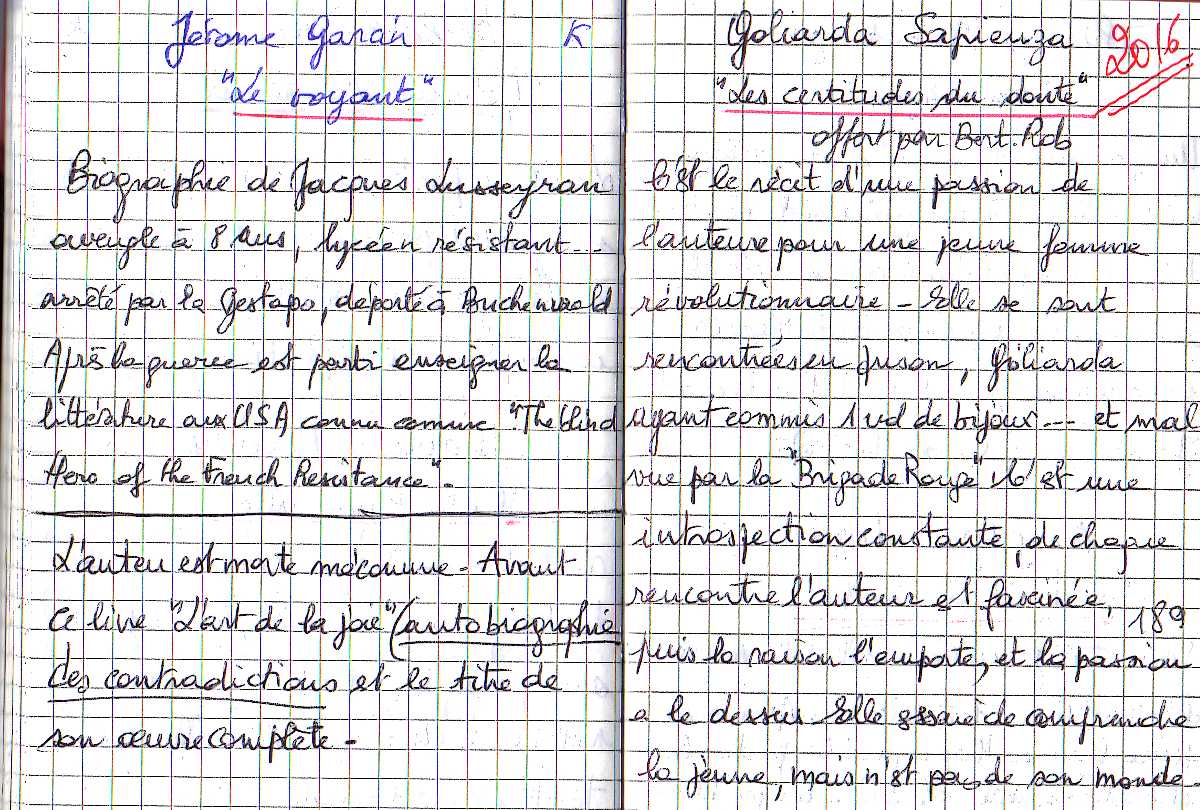 Jérome Garcin K
"Le voyant"
Biographie de Jacques Lusseyran
aveugle à 8 ans, lycéen résistant...
arrêté par la Gestapo, déporté à Buchenwald
Après la guerre est parti enseigner la
littérature aux USA connu comme "The blind
Hero of the French Resistance".
L'auteu est morte méconnue - Avant
ce livre "L'art de la joie" (autobiographie
des contradictions et le titre de
son oeuvre complète -
Goliarda Sapienza 2016
"Les certitudes du doute"
offert par Bert. Rob
C'est le récit d'une passion de
l'auteure pour une jeune femme
révolutionnaire - Elle se sont
rencontrées en prison, Goliarda
ayant commis 1 vol de bijoux... et mal
vue par la "Brigade Rouge" C'est une
introspection constante, de chaque
rencontre l'auteur est fascinée, 189
puis la raison l'emporte, et la passion
a le dessus Elle essaie de comprendre
la jeune, mais n'est pas de son monde